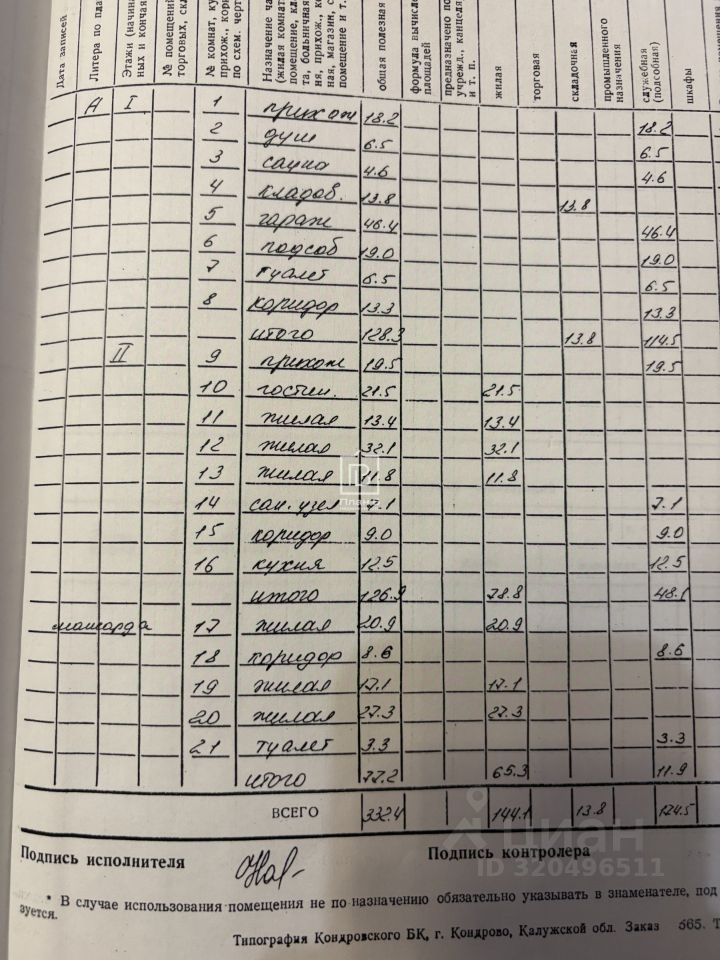 Дата записей
Литера по пла
Этажи (начина
ных и кончая
№ помещений
торговых, скл
№ комнат, ку
прихож., кор
по схем. черт
Назначение ча
(жилая комнат
помещение, кла
та, больничная
ня, прихож., ко
ная, магазин, с
помещение и т.
общая полезная
формула вычисле
площадей
предназначено по
учрежд., канцеля
и т. п.
жилая
торговая
складочная
промышленного
назначения
служебная
(подсобная)
шкафы
А I 1 прихож 18.2 18.2
2 душ 6.5 6.5
3 сауна 4.6 4.6
4 кладов. 13.8 13.8
5 гараж 46.4 46.4
6 подсоб 19.0 19.0
7 туалет 6.5 6.5
8 коридор 13.3 13.3
итого 128.3 13.8 114.5
II 9 прихож 19.5 19.5
10 гостин. 21.5 21.5
11 жилая 13.4 13.4
12 жилая 32.1 32.1
13 жилая 11.8 11.8
14 сан. узел 7.1 7.1
15 коридор 9.0 9.0
16 кухня 12.5 12.5
итого 126.9 78.8 48.1
мансарда 17 жилая 20.9 20.9
18 коридор 8.6 8.6
19 жилая 17.1 17.1
20 жилая 27.3 27.3
21 туалет 3.3 3.3
итого 77.2 65.3 11.9
ВСЕГО 332.4 144.1 13.8 174.5
циан
ID 320496511
Подпись исполнителя Подпись контролера
* В случае использования помещения не по назначению обязательно указывать в знаменателе, под
зуется.
Типография Кондровского БК, г. Кондрово, Калужской обл. Заказ 565. Т